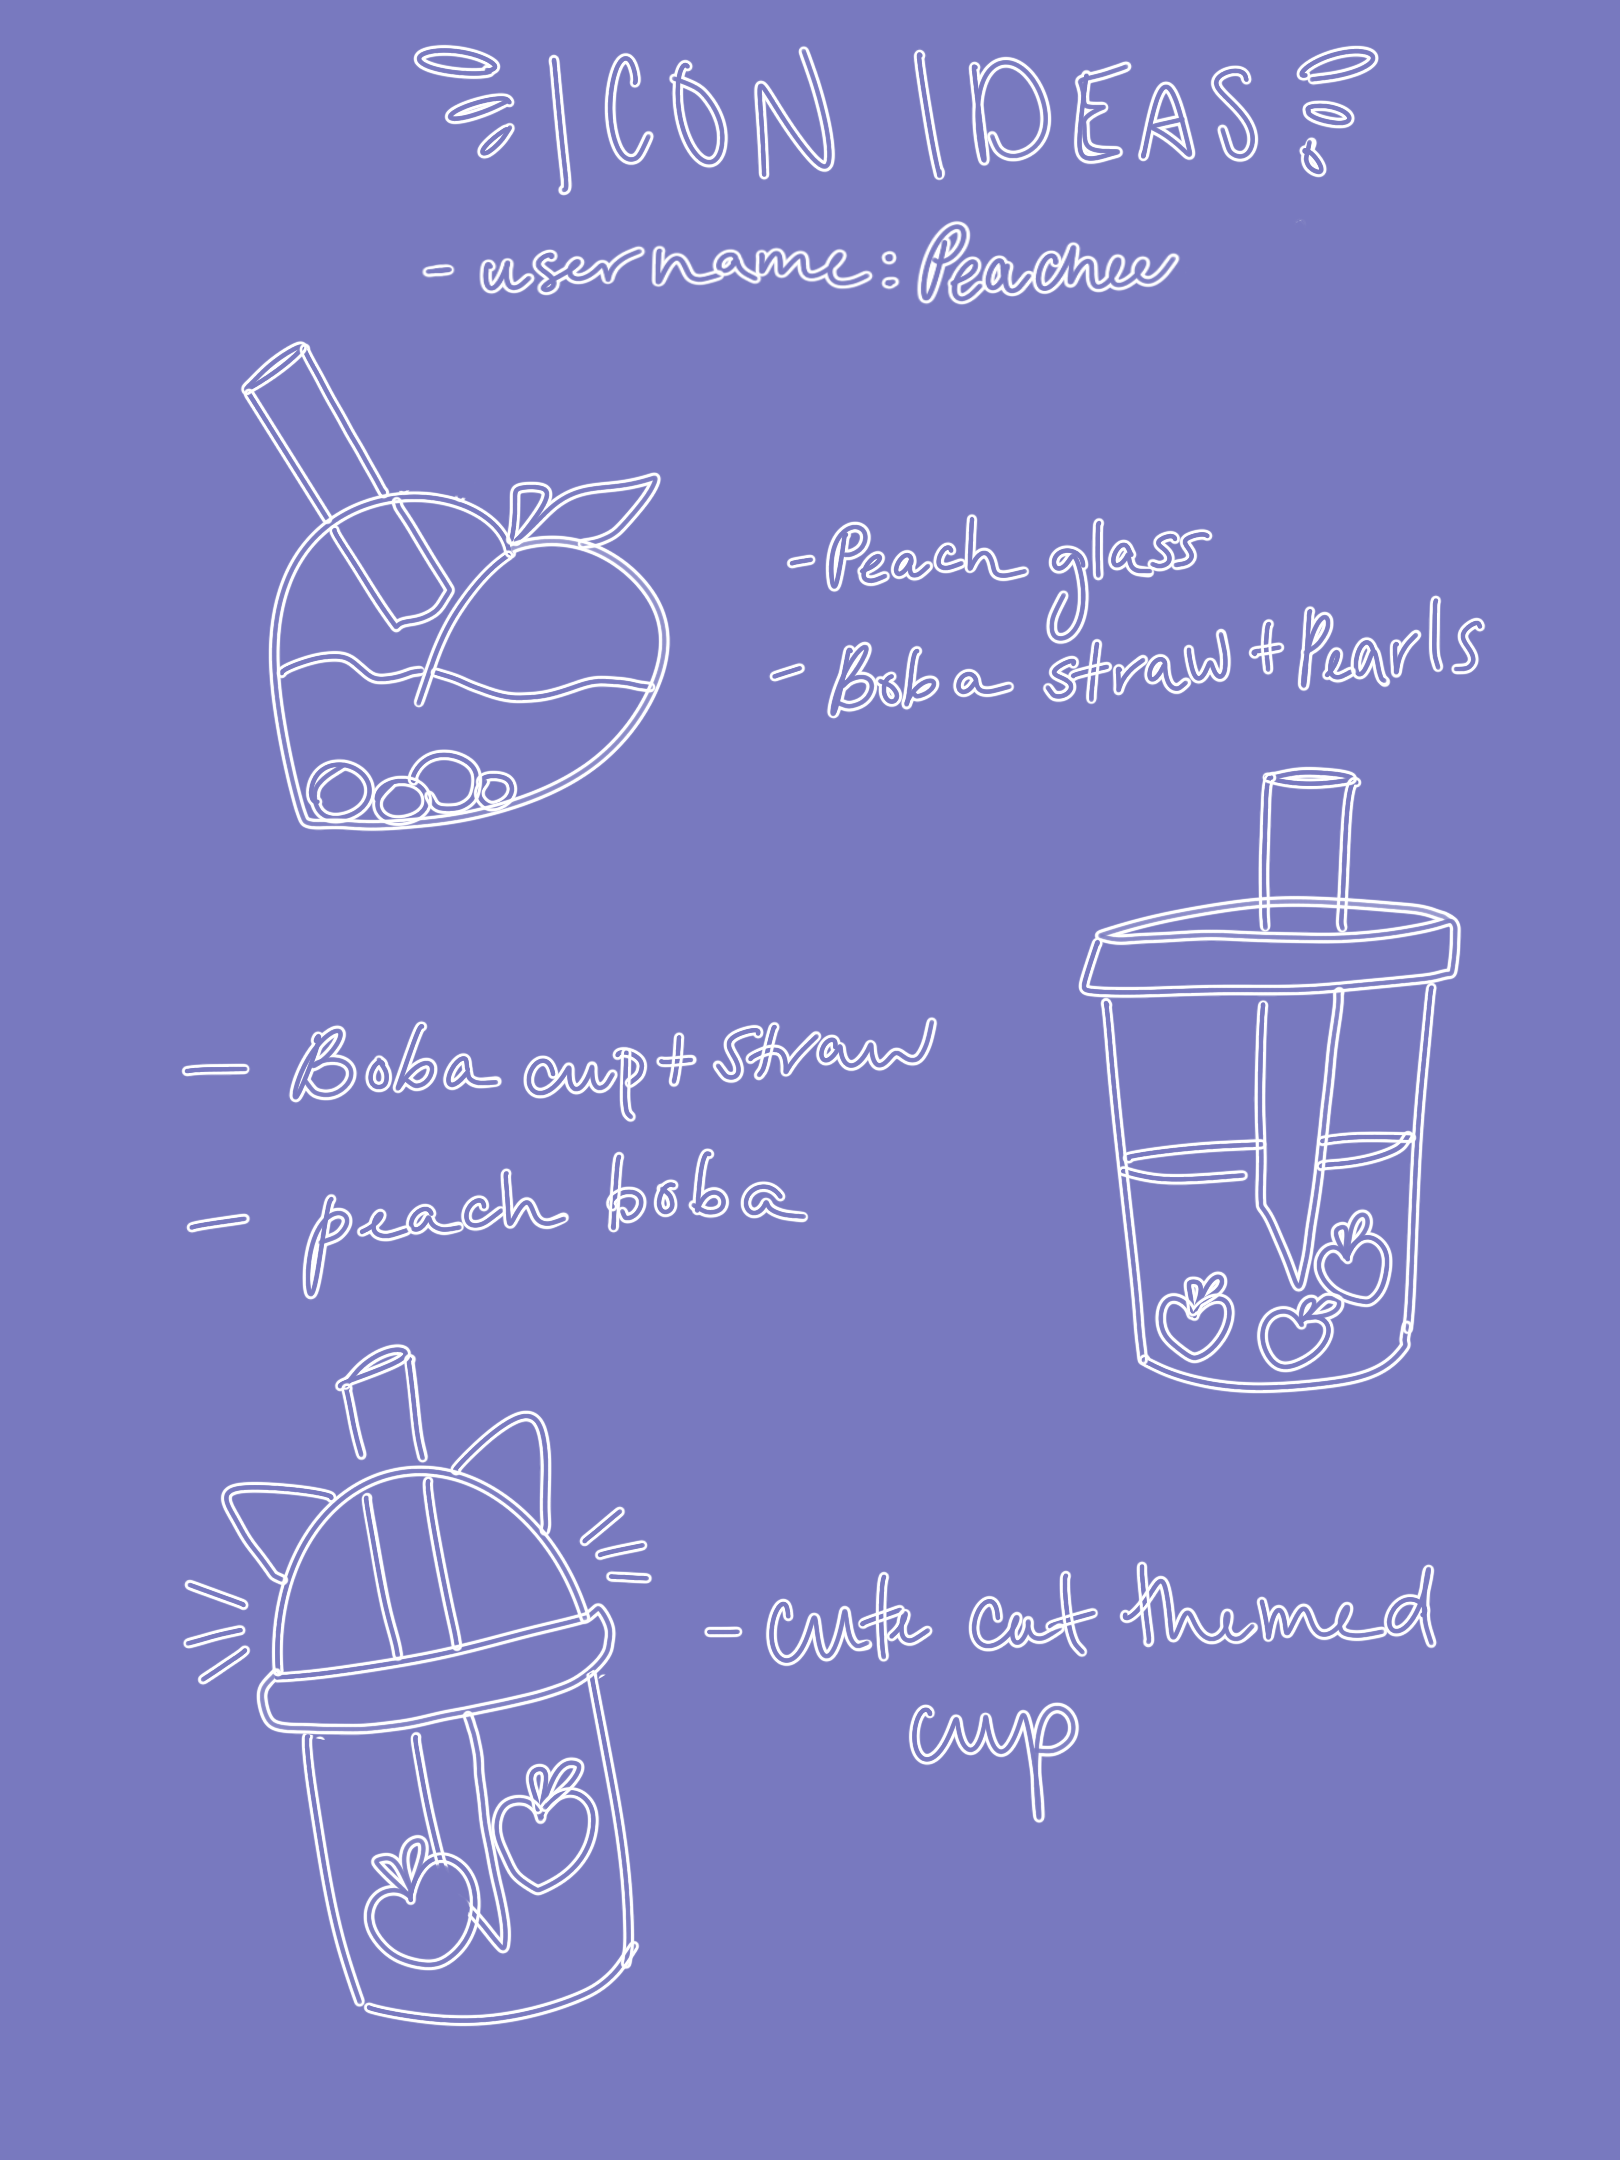 ICON IDEAS
- username: Peachee
- Peach glass
- Boba straw + Pearls
- Boba cup + straw
- peach boba
- cute cat themed
cup